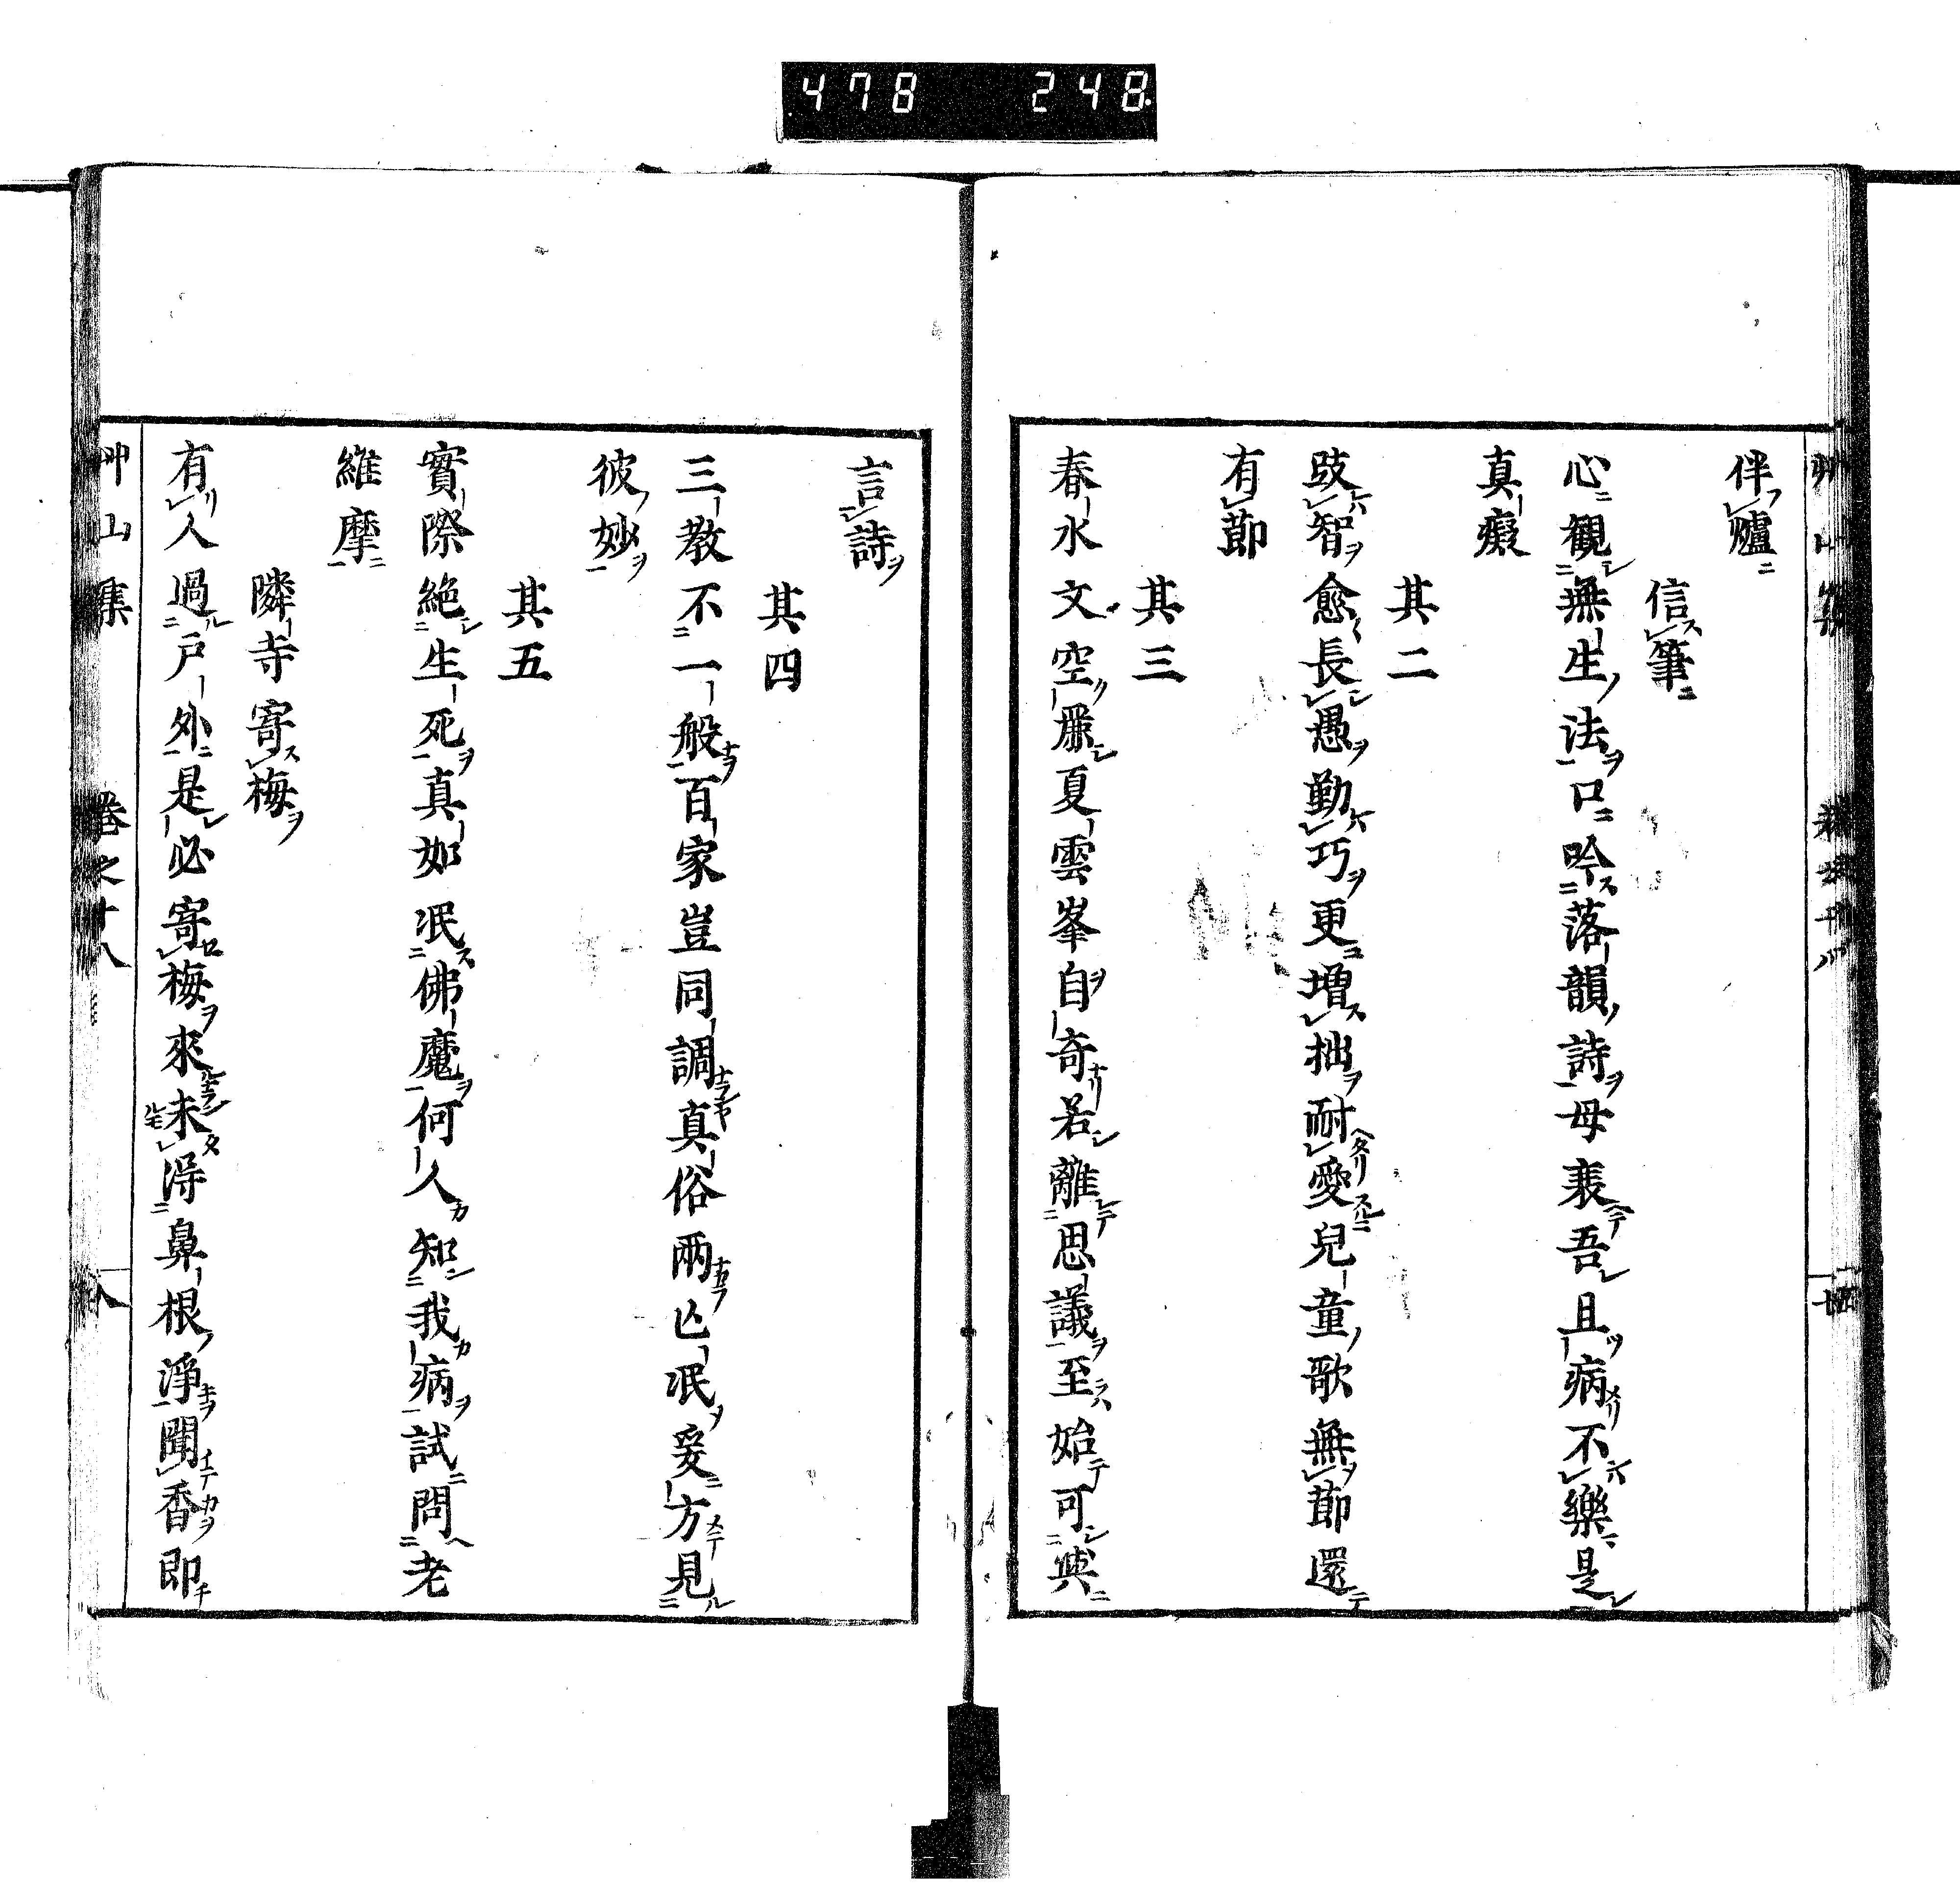 478 248
伴爐
信筆
心觀無生法口吟落韻詩母衰吾且病不樂是
真癡
其二
歧智愈長愚勤巧更増拙耐愛兒童歌無節還
有節
其三
春水文空嚴夏雲峯自奇若離思議至始可與
言詩
其四
三教不一般百家豈同調真俗兩亾泯妄方見
彼妙
其五
實際絶生死真如泯佛魔何人知我病試問老
維摩
隣寺寄梅
有人過戶外是必寄梅來未得鼻根淨聞香即
艸山集 卷之十八 八